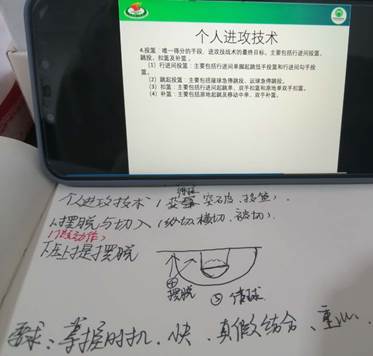 个人进攻技术
4.投篮：唯一得分的手段，进攻技战术的最终目标。主要包括行进间投篮、
跳投、扣篮及补篮。
(1) 行进间投篮：主要包括行进间单脚起跳低手投篮和行进间勾手投
篮。
(2) 跳起投篮：主要包括接球急停跳投、运球急停跳投。
(3) 扣篮：主要包括行进间起跳单、双手扣篮和原地单双手扣篮。
(4) 补篮：主要包括原地起跳及移动中单、双手补篮。
个人进攻技术（突破、投篮）.
1.摆脱与切入（纵切、横切、
摆脱
② 接球
要求：掌握时机、快、真假结合、